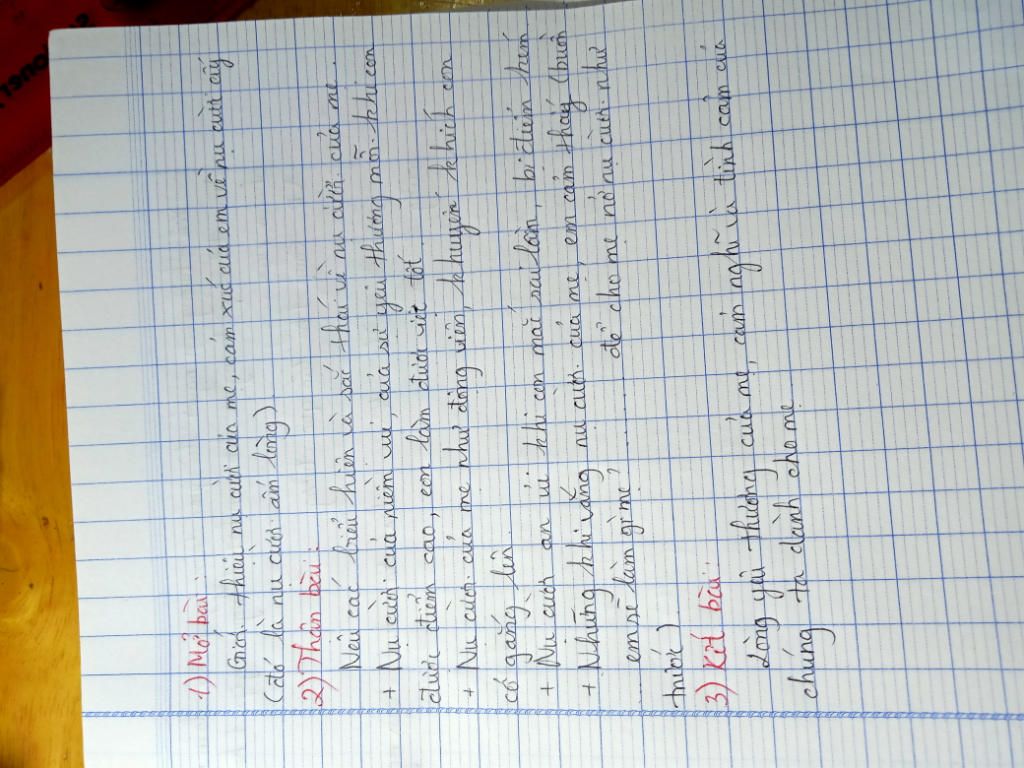 1) Mở bài:
Giới thiệu nụ cười của mẹ, cảm xúc của em về nụ cười ấy
(đó là nụ cười ấm lòng)
2) Thân bài:
Nêu các biểu hiện và sắc thái về nụ cười của mẹ.
+ Nụ cười của niềm vui, của sự yêu thương mỗi khi con
được điểm cao, con làm được việc tốt
+ Nụ cười của mẹ như động viên, khuyến khích con
cố gắng lên.
+ Nụ cười an ủi khi con mắc sai lầm, bị điểm kém
+ Những khi vắng nụ cười của mẹ, em cảm thấy (buồn
em sẽ làm gì mẹ, ........... để cho mẹ nở nụ cười như
trước)
3) Kết bài:
Lòng yêu thương của mẹ, cảm nghĩ và tình cảm của
chúng ta dành cho mẹ